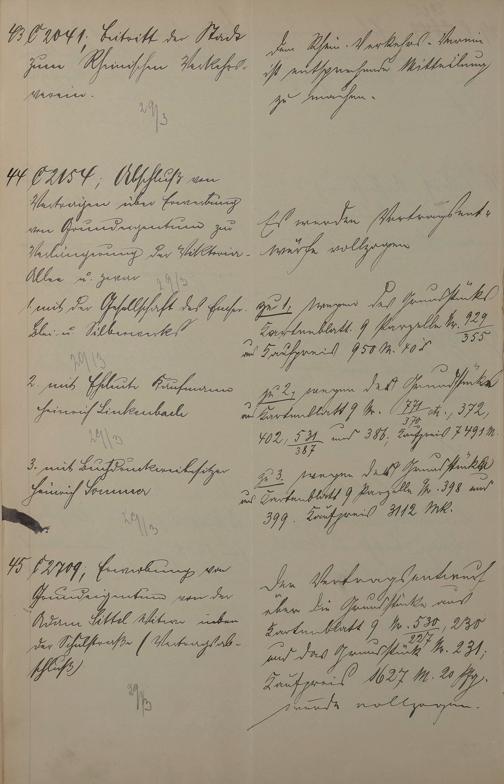 43 C 2041; Beitritt der Stadt
zum Rheinischen Verkehrs-
verein.
29/3
Dem Rhein. Verkehrs-Verein
ist entsprechende Mitteilung
zu machen.
44 C 2154; Abschluß von
Verträgen über Erwerbung
von Grundeigentum zu
Verlängerung der Viktoria-
Allee u. zwar
29/3
Es werden Vertragsent-
würfe vollzogen
1. mit der Gesellschaft des Emser
Blei- u. Silberwerks
29/3
zu 1. wegen des Grundstücks
Kartenblatt 9 Parzelle Nr. 929/355
Kaufpreis 950 M. 40
2. mit Eheleute Kaufmann
Heinrich Linkenbach
29/3
zu 2. wegen der Grundstücke
Kartenblatt 9 N. 771/370, 372,
402, 531/387 und 386; Kaufpreis 7491 M.
3. mit Buchdruckereibesitzer
Heinrich Sommer
29/3
zu 3. wegen der Grundstücke
Kartenblatt 9 Parzelle Nr. 398 und
399. Kaufpreis 3112 Mk.
45 C 2709; Erwerbung von
Grundeigentum von der
Adam Littel Witwe neben
der Schulstraße (Vertragsab-
schluß)
29/3
Der Vertragsentwurf
über die Grundstücke aus
Kartenblatt 9 N. 530/227, 230
und das Grundstück N. 231;
Kaufpreis 1627 M. 20 Pfg.
wurde vollzogen.